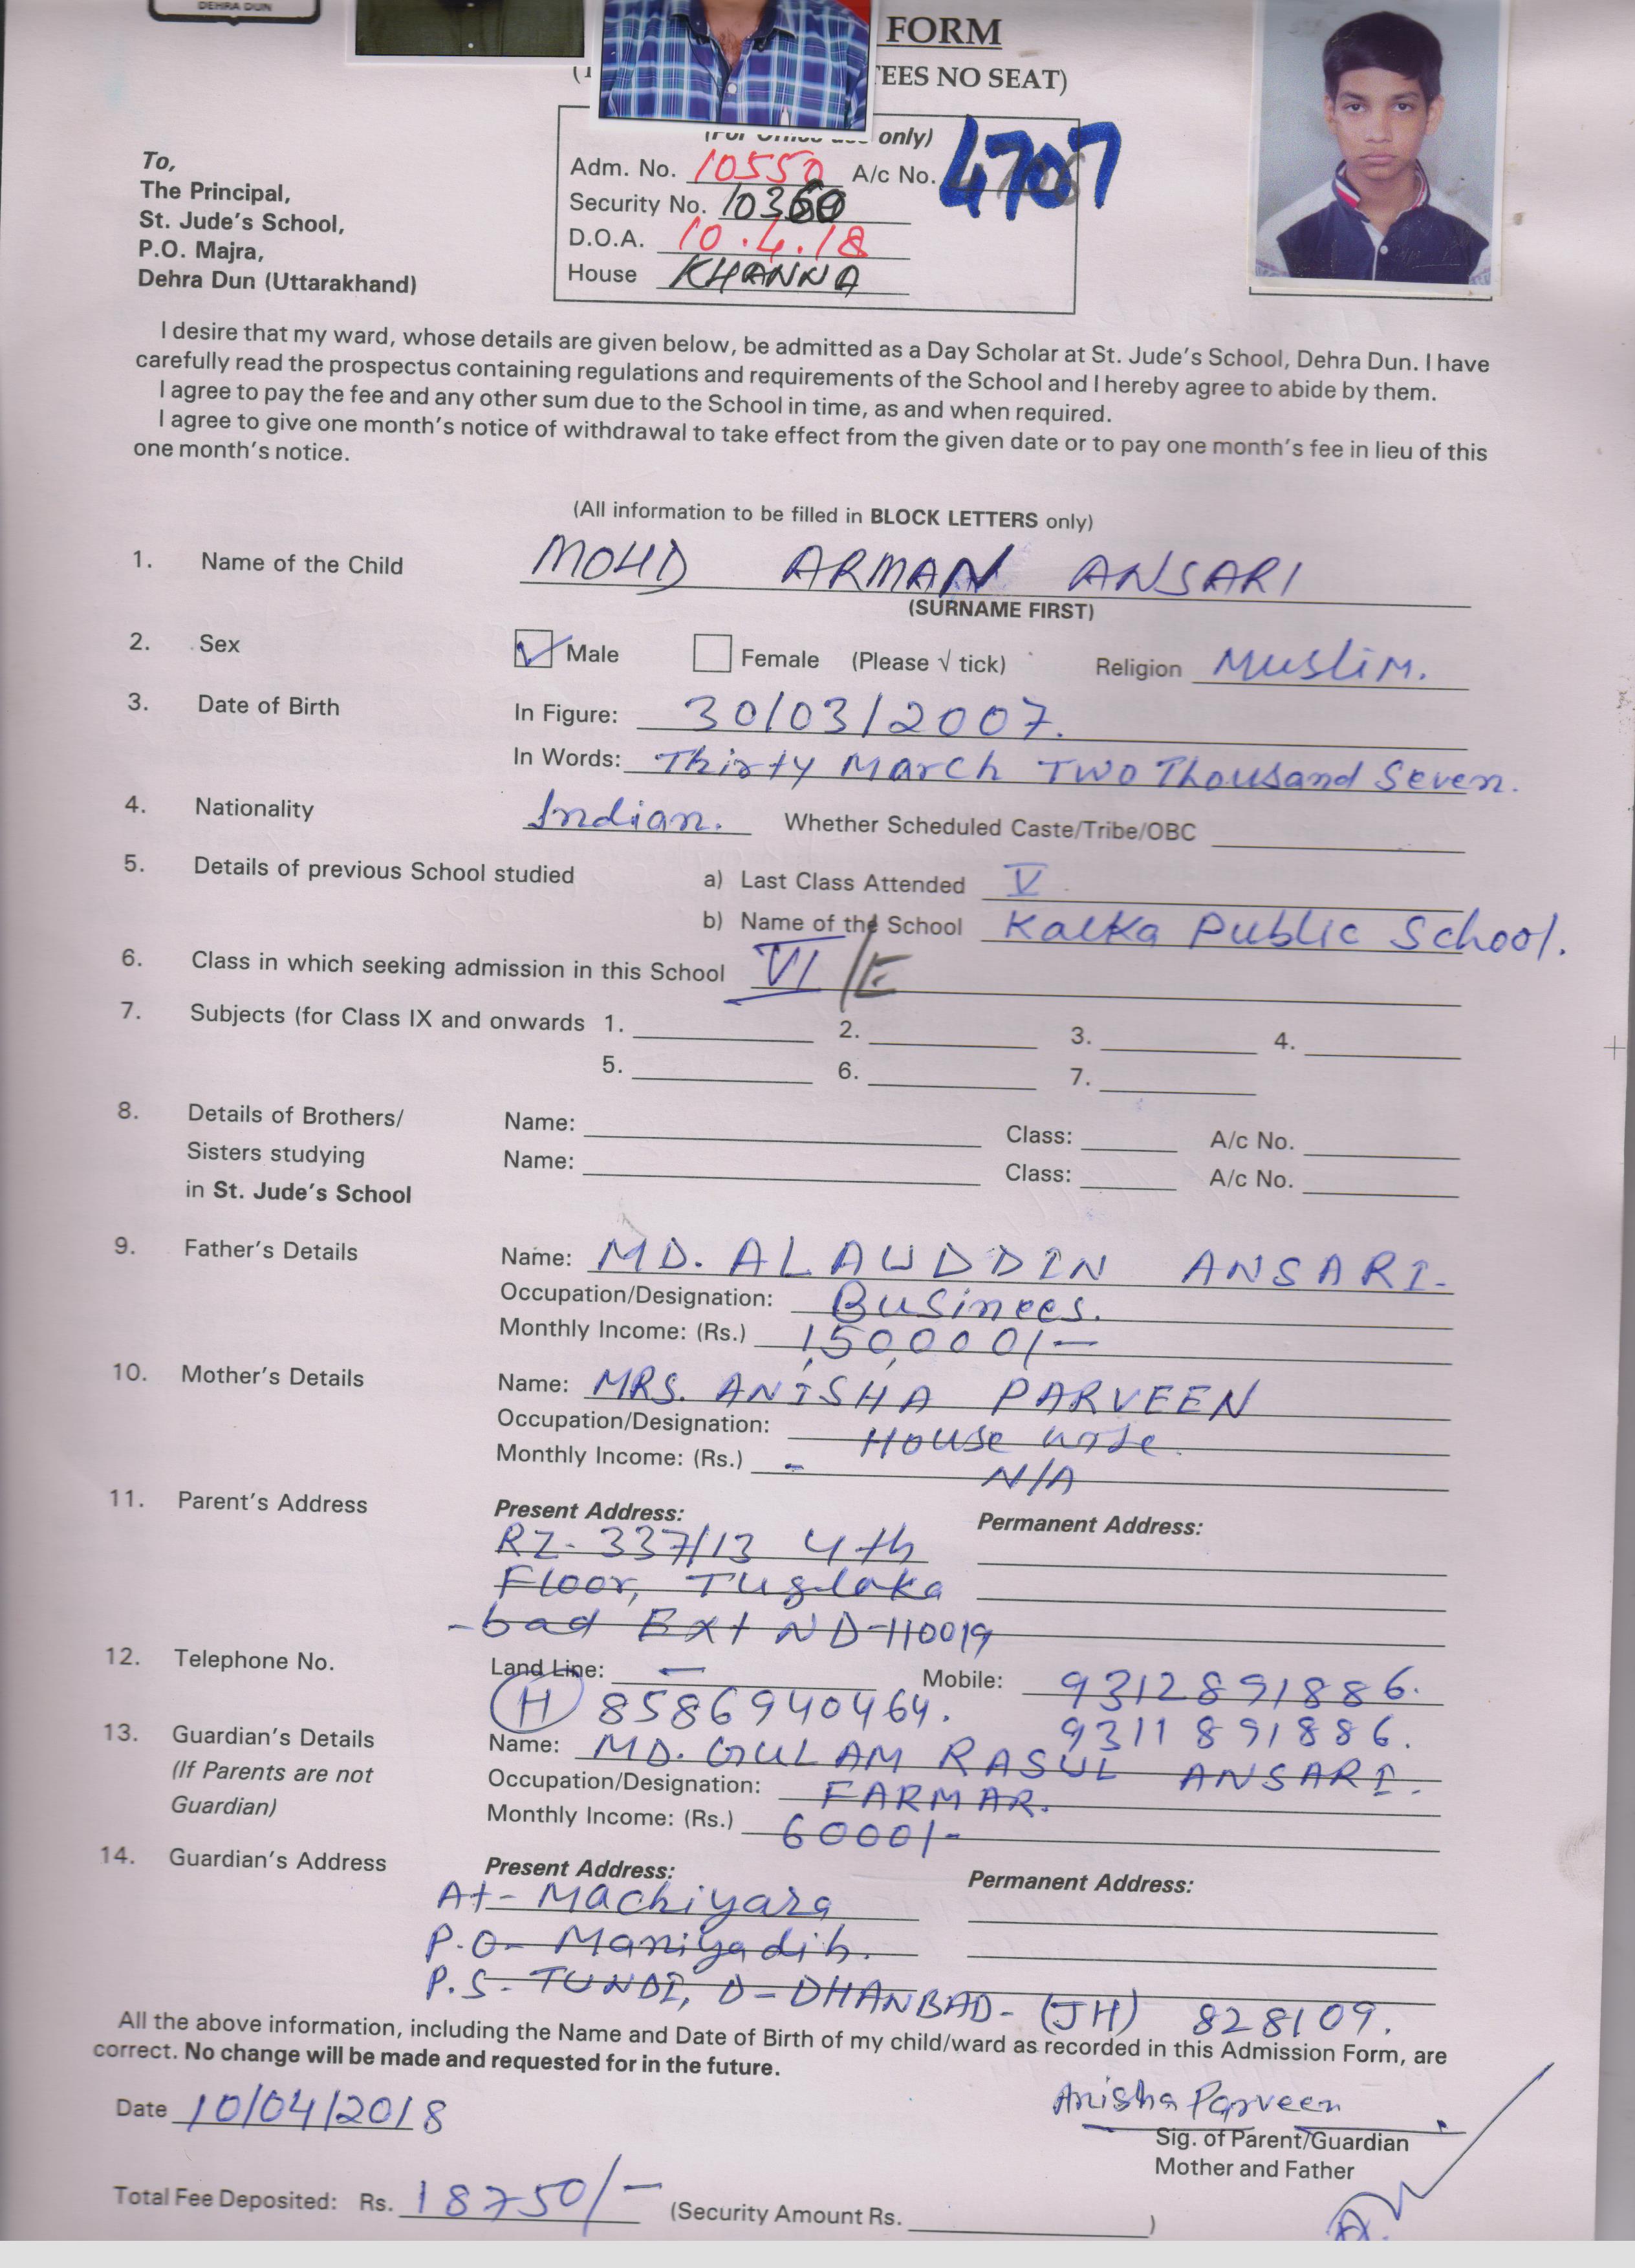 DEHRA DUN
FORM
TEES NO SEAT)
only)
Adm. No. 10550 A/c No. 4707
Security No.
D.O.A. 10.4.18
House KHANNA
To,
The Principal,
St. Jude's School,
P.O. Majra,
Dehra Dun (Uttarakhand)
I desire that my ward, whose details are given below, be admitted as a Day Scholar at St. Jude's School, Dehra Dun. I have
carefully read the prospectus containing regulations and requirements of the School and I hereby agree to abide by them.
I agree to pay the fee and any other sum due to the School in time, as and when required.
I agree to give one month's notice of withdrawal to take effect from the given date or to pay one month's fee in lieu of this
one month's notice.
(All information to be filled in BLOCK LETTERS only)
1. Name of the Child MOHD ARMAN ANSARI
(SURNAME FIRST)
2. Sex Male Female (Please √ tick) Religion Muslim.
3. Date of Birth In Figure: 30/03/2007.
In Words: Thirty March Two Thousand Seven.
4. Nationality Indian. Whether Scheduled Caste/Tribe/OBC
5. Details of previous School studied a) Last Class Attended V
b) Name of the School Kalka Public School.
6. Class in which seeking admission in this School VI/E
7. Subjects (for Class IX and onwards 1. 2. 3. 4.
5. 6. 7.
8. Details of Brothers/ Name: Class: A/c No.
Sisters studying Name: Class: A/c No.
in St. Jude's School
9. Father's Details Name: MD. ALAUDDIN ANSARI-
Occupation/Designation: Businees.
Monthly Income: (Rs.) 1,50,000/-
10. Mother's Details Name: MRS. ANISHA PARVEEN
Occupation/Designation: House wife.
Monthly Income: (Rs.) - N/A
11. Parent's Address Present Address: Permanent Address:
RZ-337/13 4th
Floor, Tuglaka
-bad Ext ND-110019
12. Telephone No. Land Line: — Mobile: 9312891886.
(H) 8586940464. 9311891886.
13. Guardian's Details Name: MD. GULAM RASUL ANSARI.
(If Parents are not Occupation/Designation: FARMAR.
Guardian) Monthly Income: (Rs.) 6000/-
14. Guardian's Address Present Address: Permanent Address:
At- Machiyara
P.O- Maniyadih.
P.S- TUNDI, D- DHANBAD- (JH) 828109.
All the above information, including the Name and Date of Birth of my child/ward as recorded in this Admission Form, are
correct. No change will be made and requested for in the future.
Date 10/04/2018 Anisha Parveen
Sig. of Parent/Guardian
Mother and Father
Total Fee Deposited: Rs. 18750/- (Security Amount Rs. )